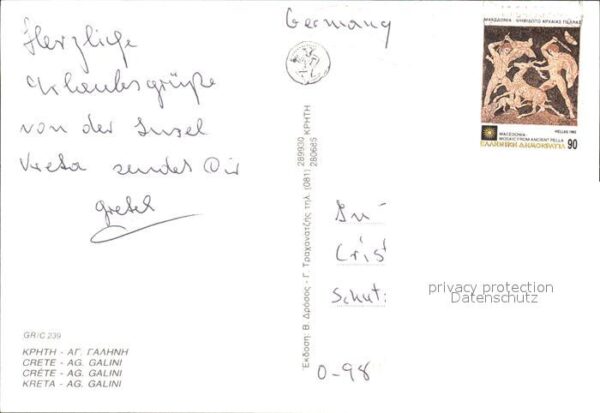 Germany
Herzliche
Urlaubsgrüße
von der Insel
Kreta sendet Dir
Gretel
ΜΑΚΕΔΟΝΙΑ - ΨΗΦΙΔΩΤΟ ΑΡΧΑΙΑΣ ΠΕΛΛΑΣ
HELLAS 1992
MACEDONIA
MOSAIC FROM ANCIENT PELLA
ΕΛΛΗΝΙΚΗ ΔΗΜΟΚΡΑΤΙΑ 90
Έκδοση: Β. Δρόσος - Γ. Τραχανατζής τηλ. (081) 289930
280685 ΚΡΗΤΗ
Crist
Schut
O-98
privacy protection
Datenschutz
GR/C 239
ΚΡΗΤΗ - ΑΓ. ΓΑΛΗΝΗ
CRETE - AG. GALINI
CRÈTE - AG. GALINI
KRETA - AG. GALINI